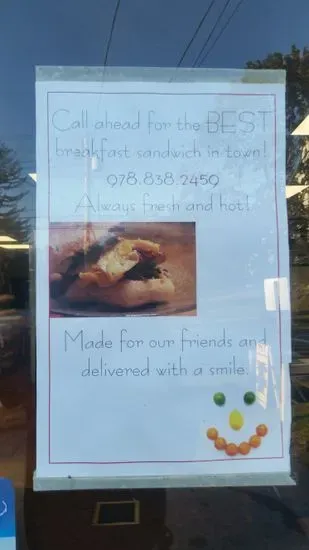 Call ahead for the BEST
breakfast sandwich in town!
978.838.2459
Always fresh and hot!
Made for our friends and
delivered with a smile.